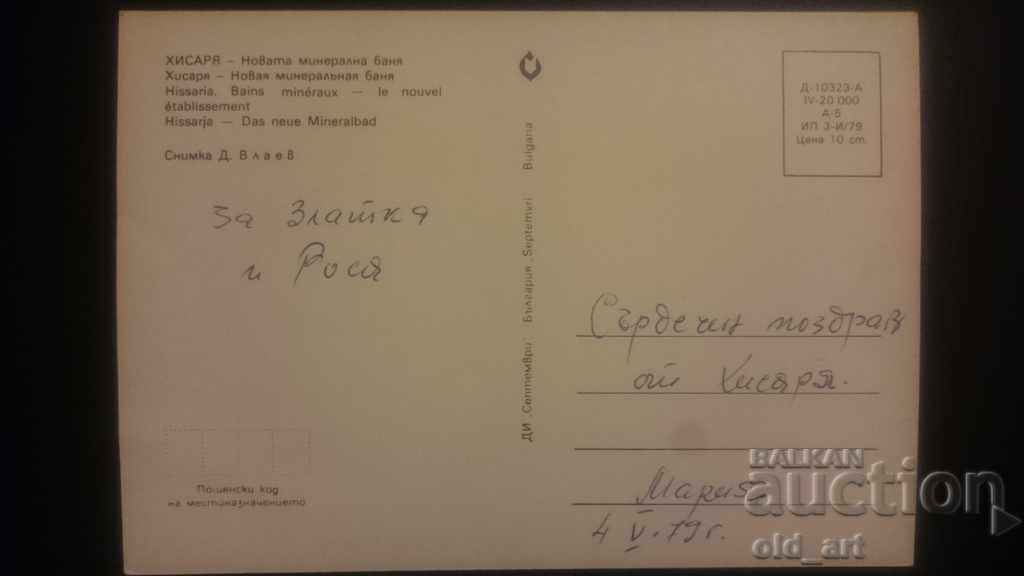 ХИСАРЯ – Новата минерална баня
Хисаря – Новая минеральная баня
Hissaria. Bains minéraux — le nouvel
établissement
Hissarja — Das neue Mineralbad
Снимка Д. Влаев
за Златка
и Рося
Пощенски код
на местиназначението
ДИ „Септември" България „Septemvri" Bulgaria
Д-10323-А
IV-20 000
А-6
ИП 3-И/79
Цена 10 ст.
Сърдечни поздрав
от Хисаря.
Мария
4 V. 79 г.
BALKAN
auction
old_art